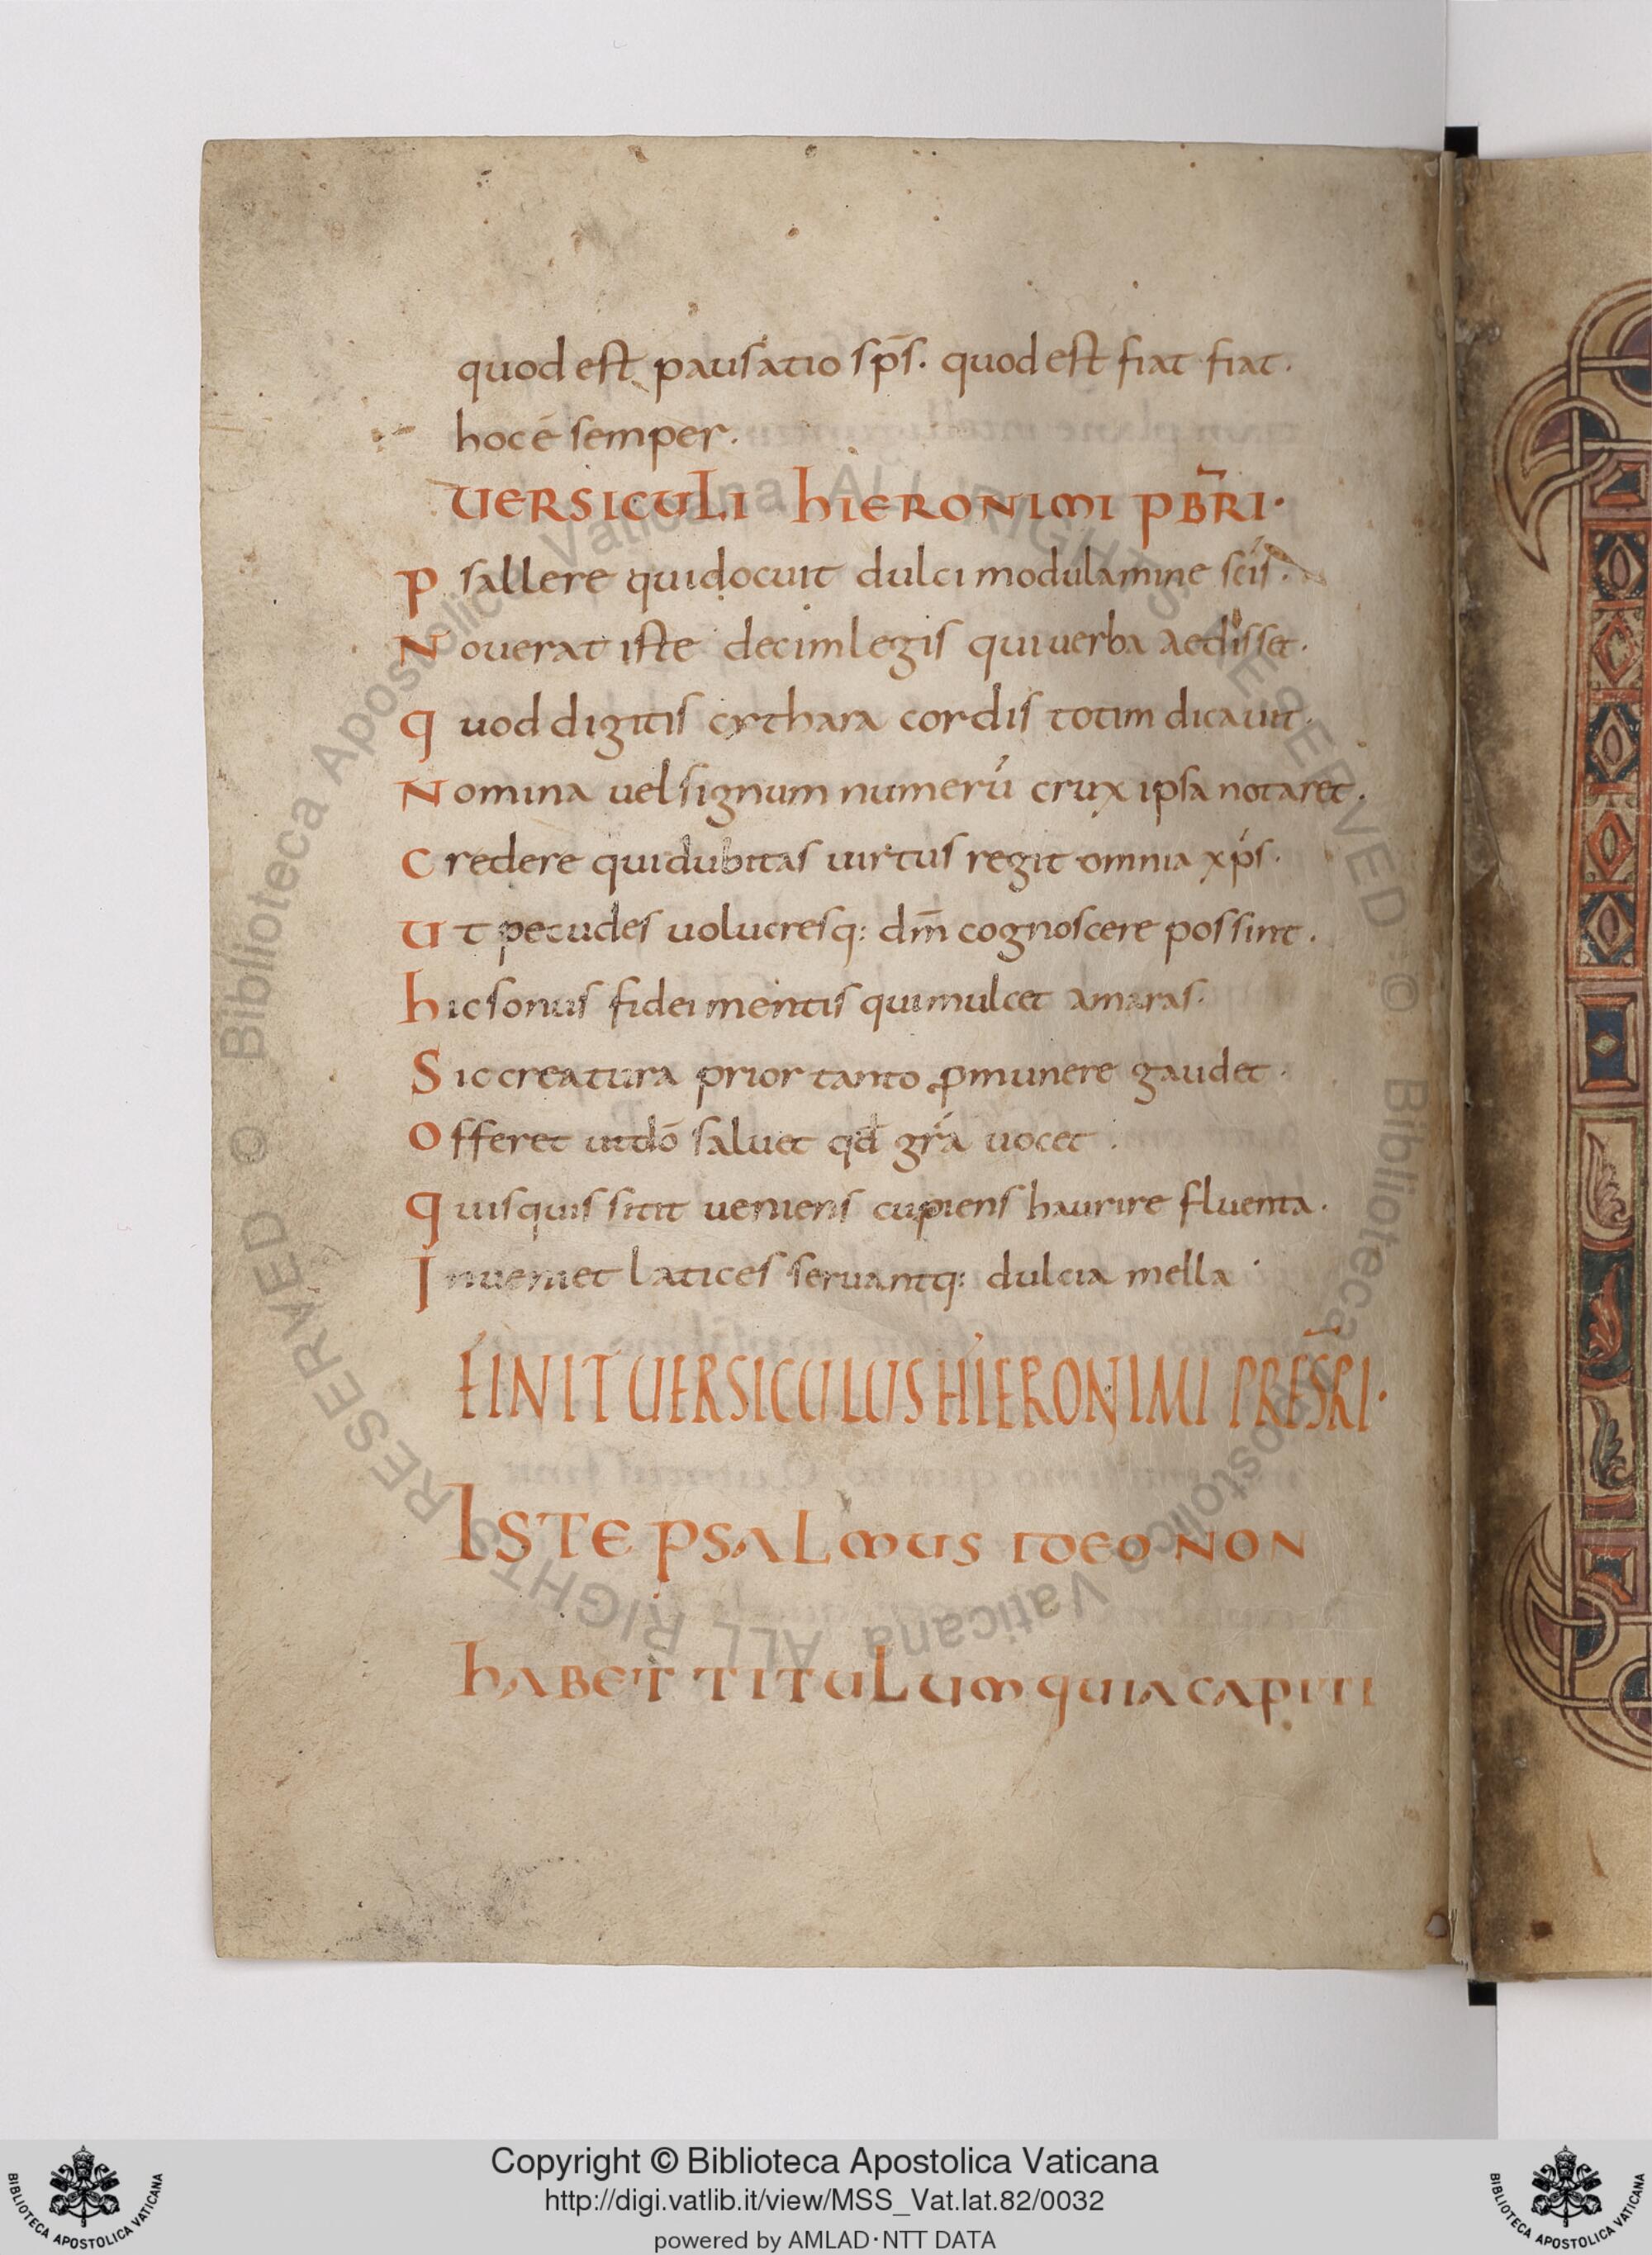 quod est pausatio sp̄s. quod est fiat fiat.
hoc ē semper.
UERSICULI hIERONIMI PB̄RI·
Psallere qui docuit dulci modulamine sc̄is.
Nouerat iste decim legis qui uerba aedisset.
quod digitis cythara cordis totim dicauit.
Nomina uel signum numerū crux ipsa notaret.
Credere qui dubitas uirtus regit omnia xp̄s.
Ut pecudes uolucresq: dm̄ cognoscere possint.
hic sonus fidei mentis qui mulcet amaras.
Sic creatura prior tanto ꝓ munere gaudet.
Offeret ut dō saluet qđ gr̄a uocet.
quisquis sitit ueniens cupiens haurire fluenta.
Inueniet latices seruantq: dulcia mella
FINIT UERSICULUS HIERONIMI PRES̄RI·
ISTE PSALMUS IDEO NON
hABET TITULUM QUIA CAPITI
Copyright © Biblioteca Apostolica Vaticana
http://digi.vatlib.it/view/MSS_Vat.lat.82/0032
powered by AMLAD·NTT DATA
BIBLIOTECA APOSTOLICA VATICANA
BIBLIOTECA APOSTOLICA VATICANA
© Biblioteca Apostolica Vaticana ALL RIGHTS RESERVED © Biblioteca Apostolica Vaticana ALL RIGHTS RESERVED